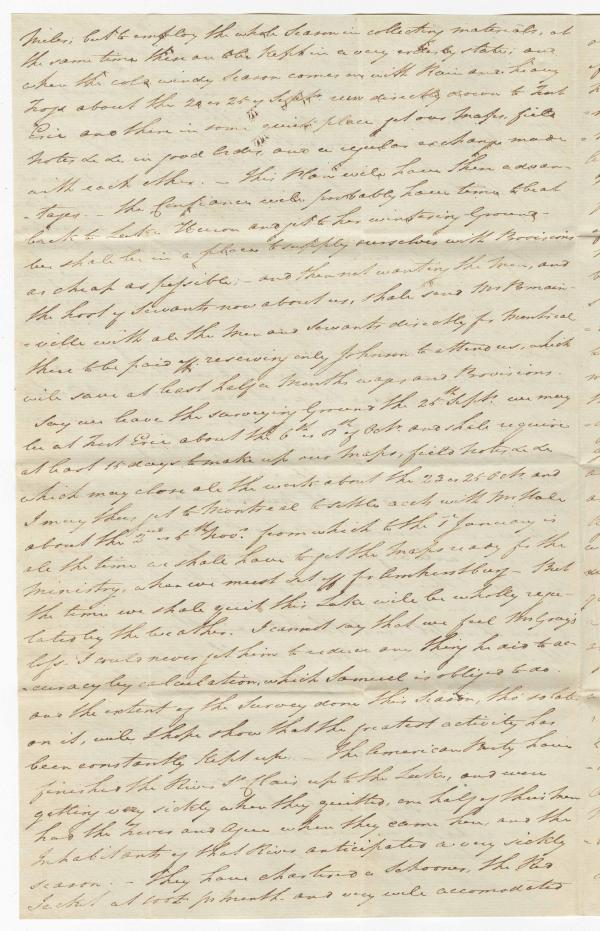 Miles; but to employ the whole Season in collecting materials, at
the same time these are to be kept in a very orderly state; and
when the cold windy season comes on with Rain and heavy
Fogs about the 20 or 25 of Septr. run directly down to Fort
Erie and there in some quiet place get our maps, field
notes &c &c in good order, and a regular exchange made
with each other. – This Plan will have these advan-
-tages – the Confiance will probably have time to beat
back to Lake Huron and get to her wintering Ground –
We shall be in a place to supply ourselves with Provisions
as cheap as possible; – and then not wanting the Men, and
the host of Servants now about us, shall send Mr Romain-
-ville with all the men and Servants directly for Montreal
there to be paid off: reserving only Johnson to attend us, which
will save at least half a Months wages and Provisions.
Say we leave the surveying Ground the 25th Septr. we may
be at Fort Erie about the 6th or 8th of Octr. and shall require
at least 15 days to make up our maps, field notes &c &c
which may close all the work about the 23 or 25 Octr. and
I may then get to Montreal to settle accts with Mr Hale
about the 2nd or 5th Novr. from which to the 1st January is
all the time we shall have to get the maps ready for the
Ministry, when we must set off for Amherstburg – But
the time we shall quit this Lake will be wholly regu-
lated by the weather. I cannot say that we feel Mr Grays
loss. I could never get him to reduce any thing he did to ac-
-curacy by calculation, which Samuel is obliged to do.
and the extent of the Survey done this Season, tho' so late
on it, will I hope show that the greatest activity has
been constantly kept up – The American Party have
finished the River St Clair up to the Lake, and were
getting very sickly when they quitted, one half of their Men
had the Fever and Ague when they came here, and the
Inhabitants of that River anticipated a very sickly
season. – They have chartered a Schooner, the Red
Jacket at per month and very well accomodated